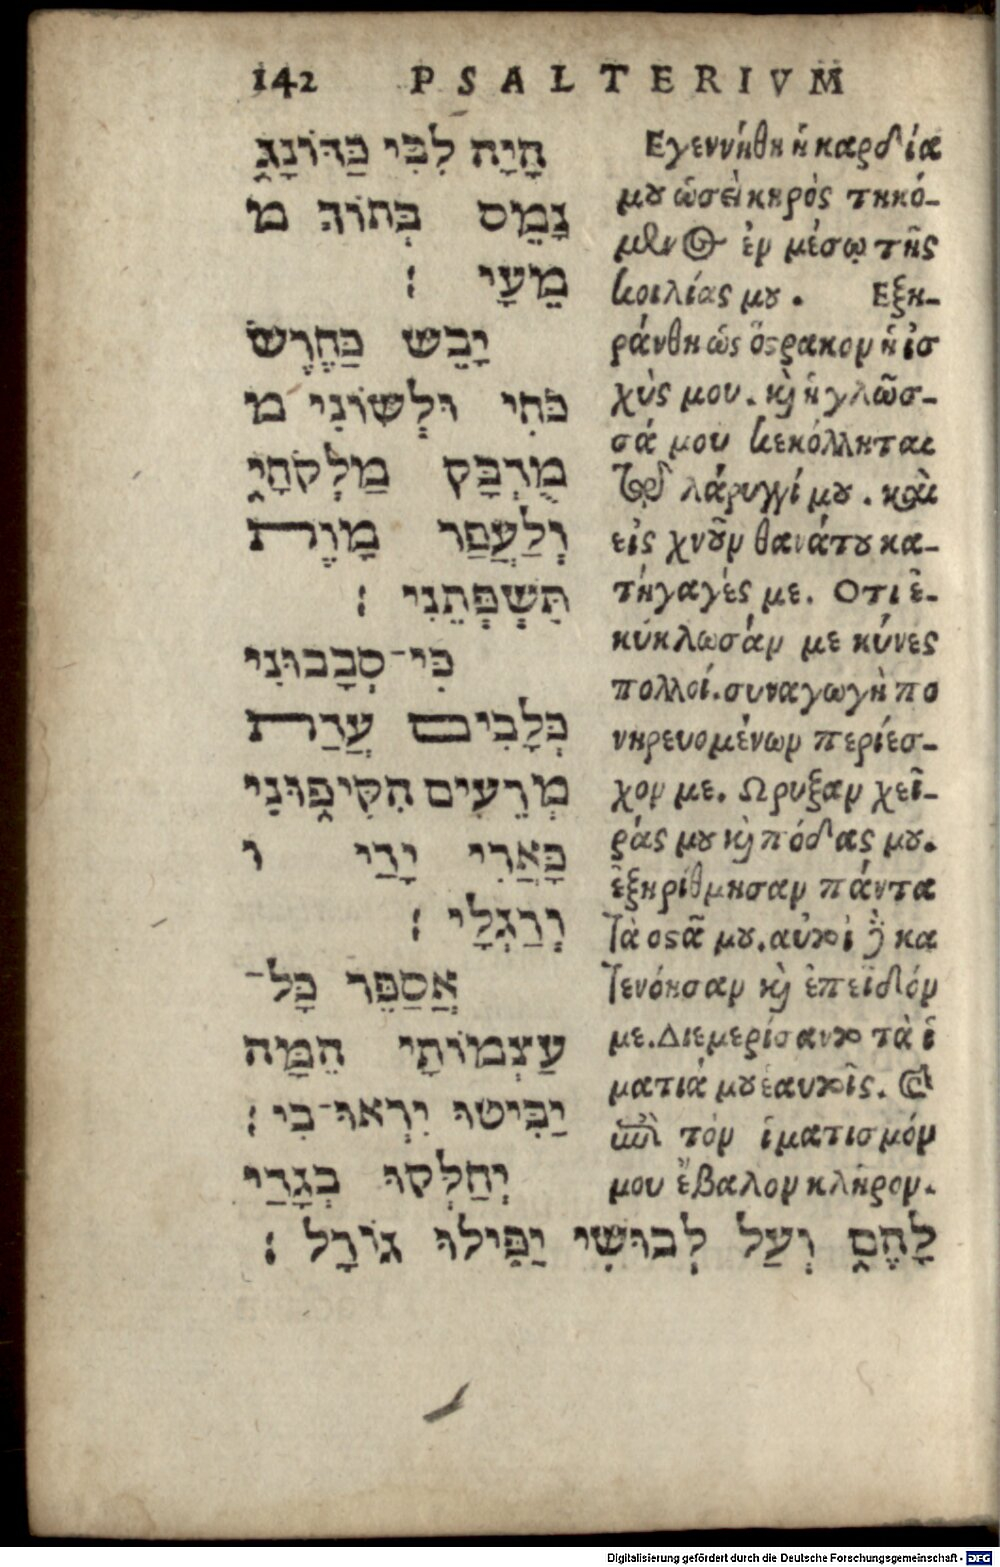 142 PSALTERIVM
הָיָה לִבִּי כַּדּוֹנָג
נָמֵס בְּתוֹךְ מ
מֵעָי :
יָבֵשׁ כַּחֶרֶשׂ
כֹּחִי וּלְשׁוֹנִי מ
מֻדְבָּק מַלְקֹחָי
וְלַעֲפַר מָוֶת
תִּשְׁפְּתֵנִי :
כִּי־סְבָבוּנִי
כְּלָבִים עֲדַת
מְרֵעִים הִקִּיפוּנִי
כָּאֲרִי יָדַי ו
וְרַגְלָי :
אֲסַפֵּר כָּל־
עַצְמוֹתָי הֵמָּה
יַבִּיטוּ יִרְאוּ־בִי :
יְחַלְּקוּ בְגָדַי
לָהֶם וְעַל לְבוּשִׁי יַפִּילוּ גוֹרָל :
Εγεννήθη ἡ καρδία
μȣ ὡσεὶ κηρὸς τηκό-
μενος ἐν μέσῳ τῆς
κοιλίας μȣ. Εξη-
ράνθη ὡς ὄστρακον ἡ ἰσ
χὺς μου. κ̀ ἡ γλῶσ-
σά μου κεκόλληται
τῷ λάρυγγί μȣ. καὶ
εἰς χνȣ̃ν θανάτȣ κα-
τήγαγές με. Οτι ἐ-
κύκλωσάν με κύνες
πολλοί. συναγωγὴ πο
νηρευομένων περίεσ-
χον με. Ωρυξαν χεῖ-
ράς μȣ κ̀ πόδας μȣ.
ἐξηρίθμησαν πάντα
τὰ οστᾶ μȣ. αὐτοὶ δὲ κα
τενόησαν κ̀ ἐπεῖδόν
με. Διεμερίσαντο τὰ ἱ
ματιά μȣ ἑαυτοῖς. καὶ
ἐπὶ τὸν ἱματισμόν
μου ἔβαλον κλῆρον.
Digitalisierung gefördert durch die Deutsche Forschungsgemeinschaft - DFG